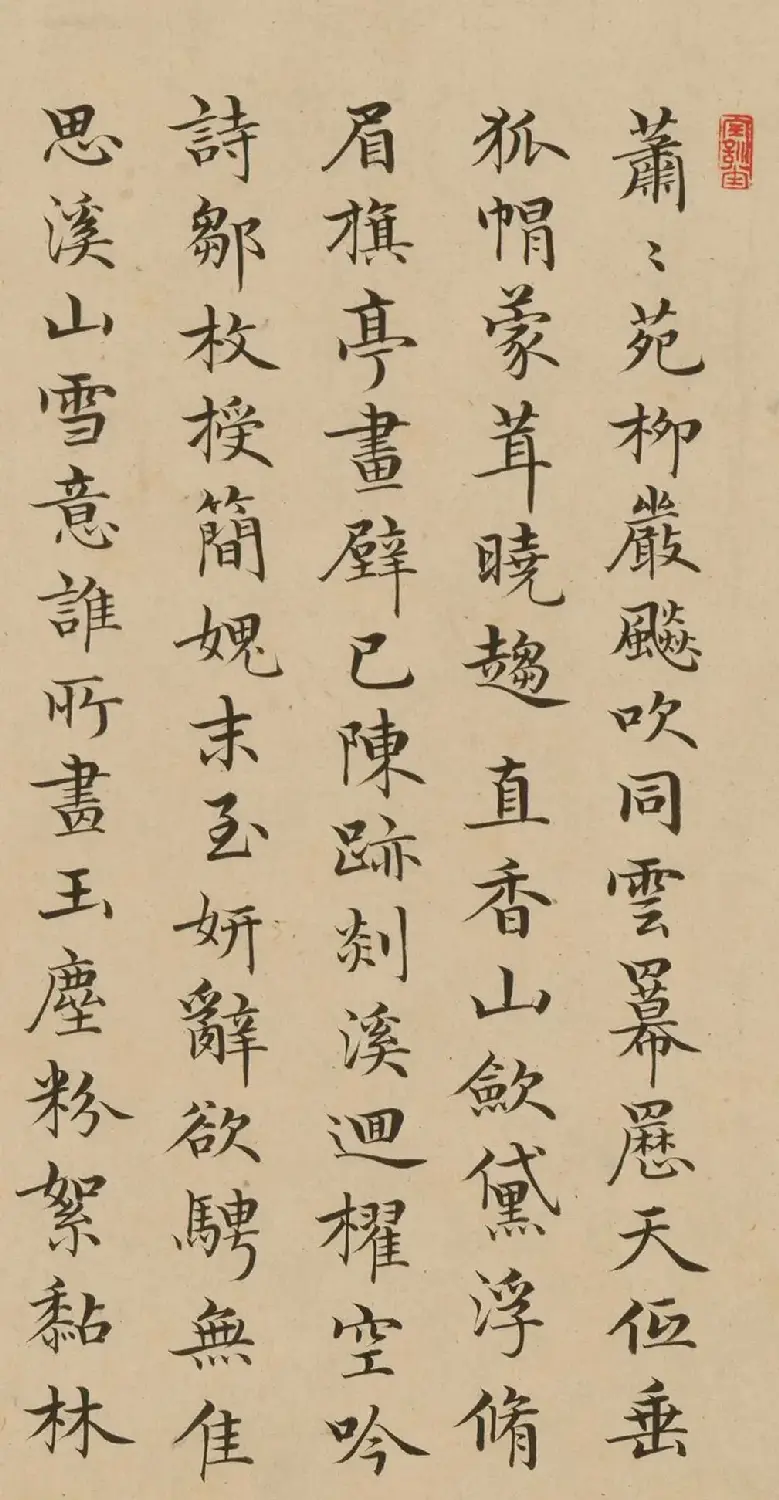 蕭〻苑柳嚴飈吹同雲羃䍥天低垂
狐帽蒙茸曉趨直香山歛黛浮脩
眉旗亭畫壁已陳跡剡溪迴櫂空吟
詩鄒枚授簡媿末至妍辭欲騁無佳
思溪山雪意誰所畫玉塵粉絮黏林